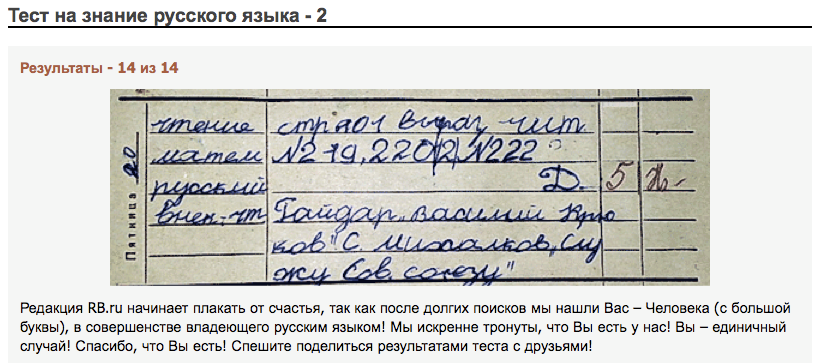 Тест на знание русского языка - 2
Результаты - 14 из 14
Пятница 20
чтение стр 101 Выраз чит.
матем №219, 220(2), №222
русский Д. 5
Внек-чт Гайдар „Василий Крю
ков" С. Михалков „Слу
жу Сов. союзу"
Редакция RB.ru начинает плакать от счастья, так как после долгих поисков мы нашли Вас – Человека (с большой
буквы), в совершенстве владеющего русским языком! Мы искренне тронуты, что Вы есть у нас! Вы – единичный
случай! Спасибо, что Вы есть! Спешите поделиться результатами теста с друзьями!